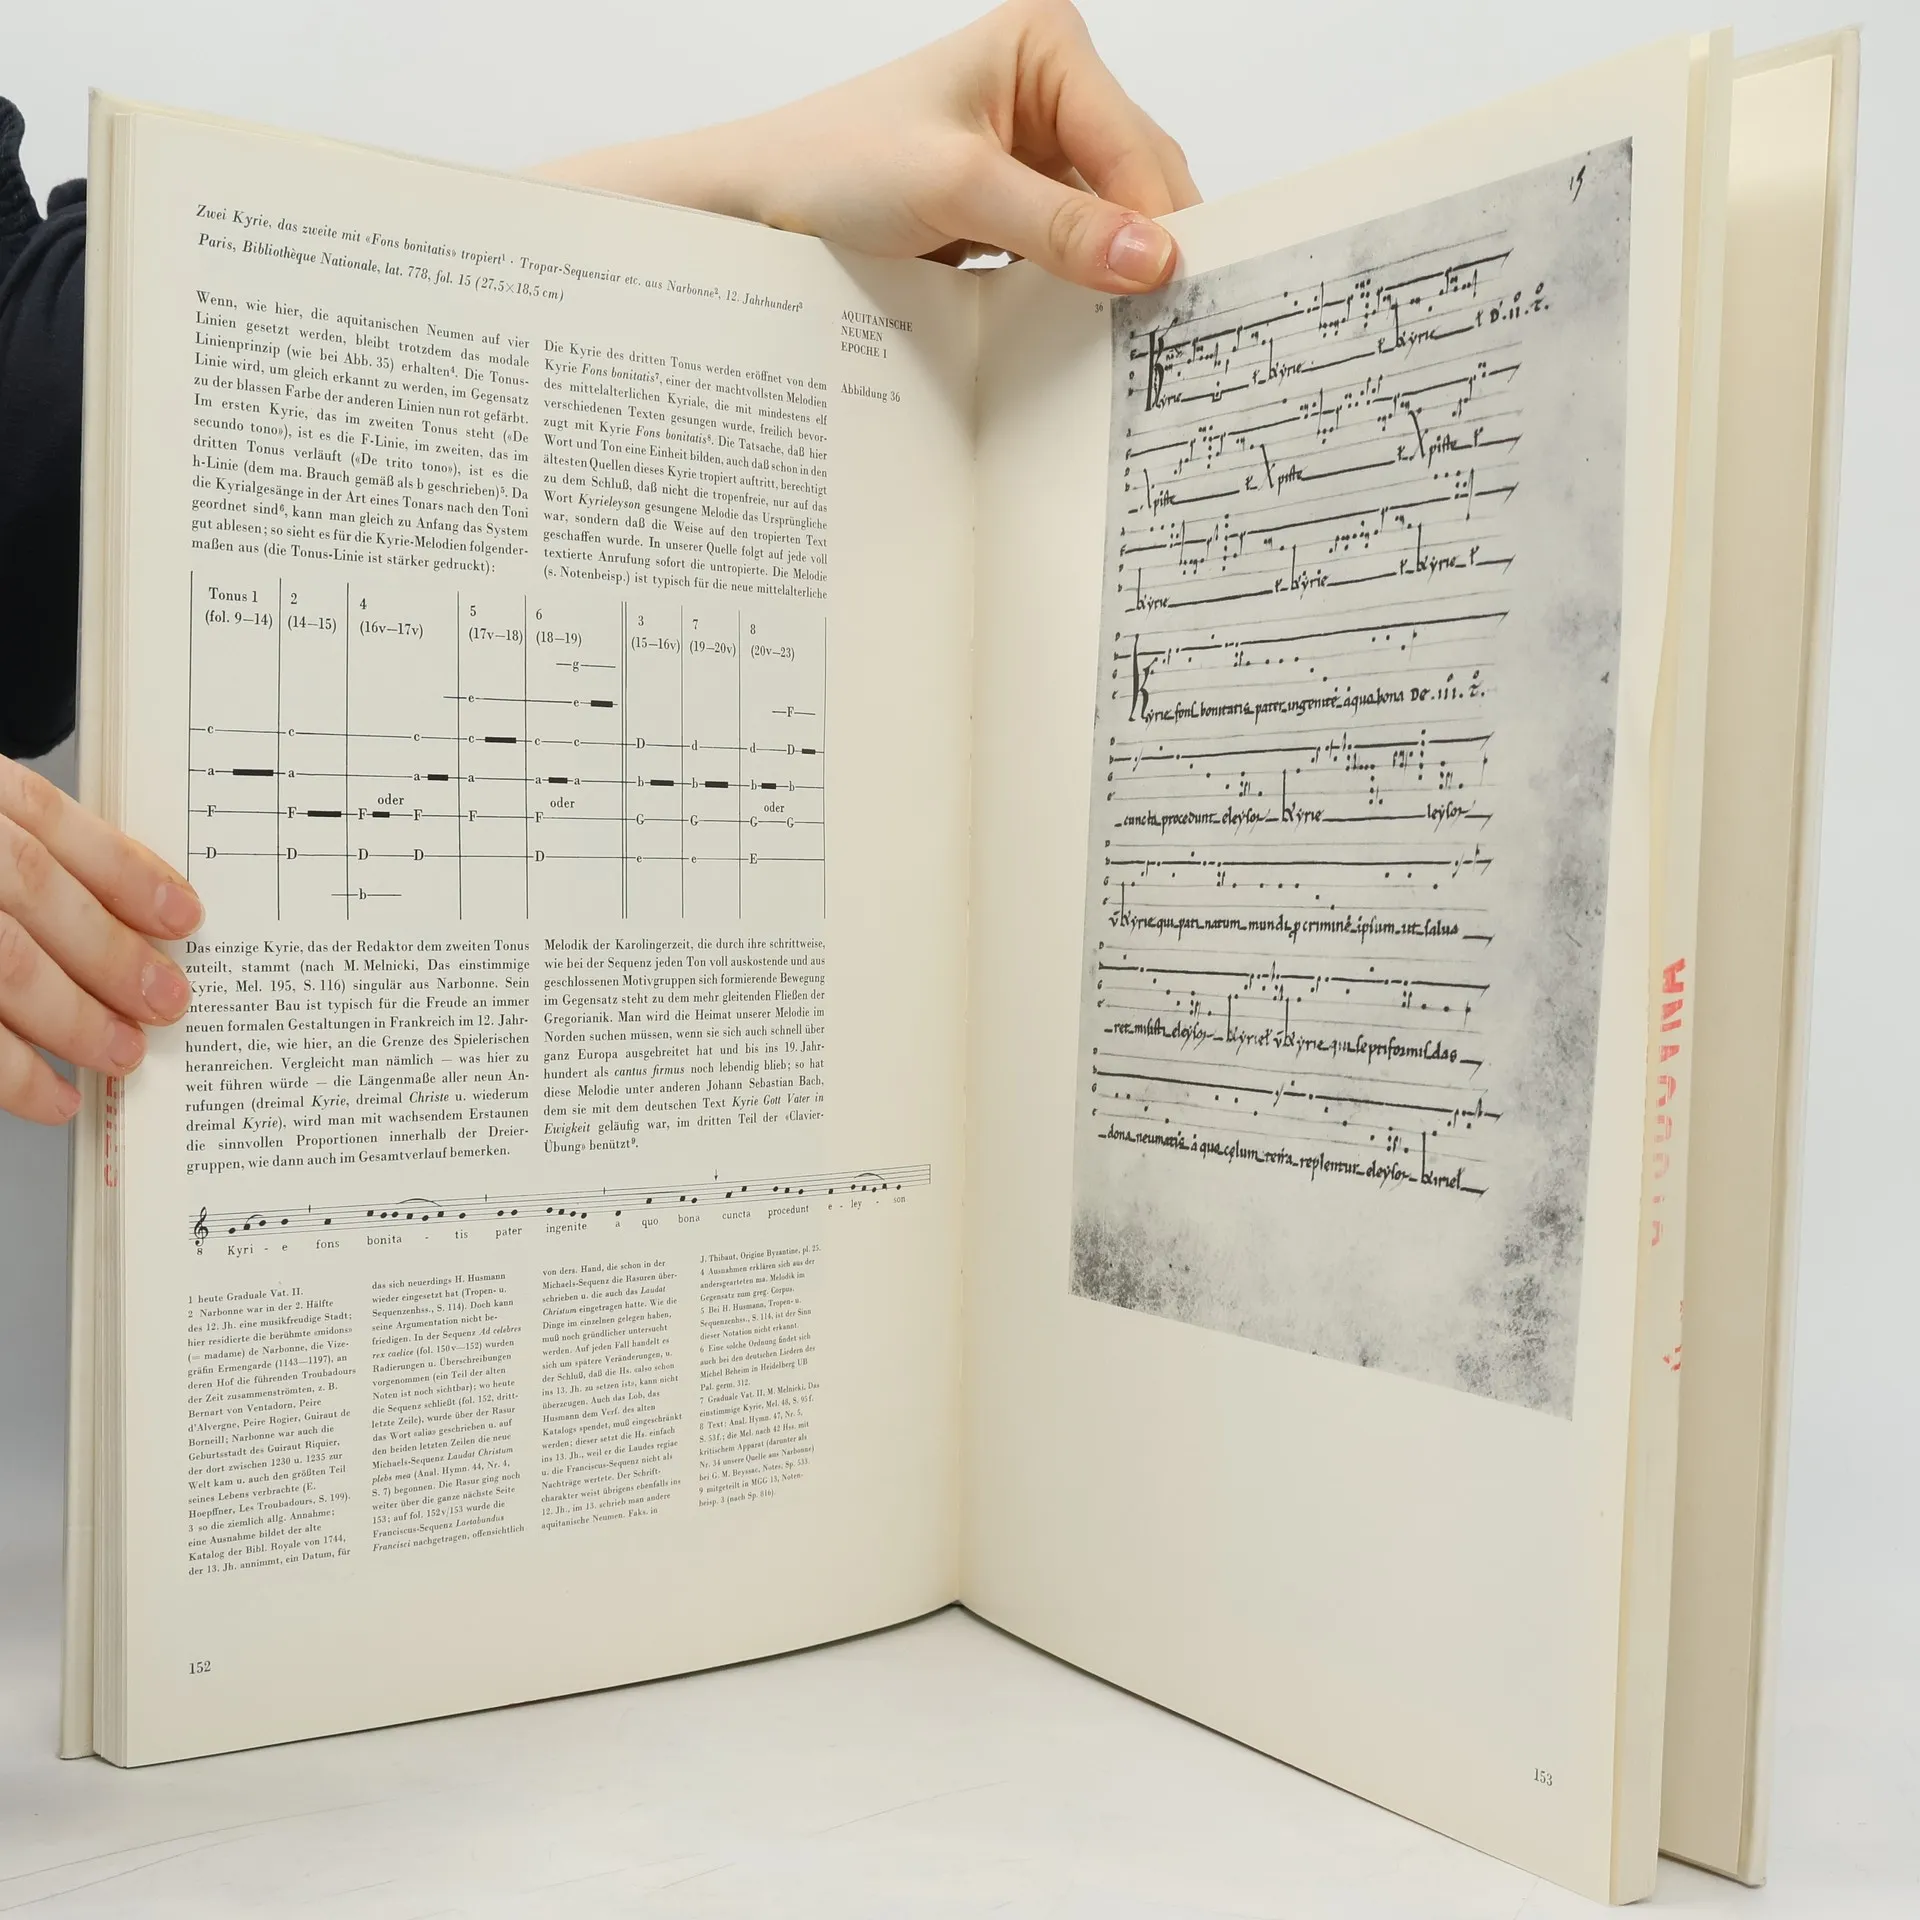 Zwei Kyrie, das zweite mit «Fons bonitatis» tropiert¹ · Tropar-Sequenziar etc. aus Narbonne², 12. Jahrhundert³
Paris, Bibliothèque Nationale, lat. 778, fol. 15 (27,5×18,5 cm)
Wenn, wie hier, die aquitanischen Neumen auf vier
Linien gesetzt werden, bleibt trotzdem das modale
Linienprinzip (wie bei Abb. 35) erhalten⁴. Die Tonus-
Linie wird, um gleich erkannt zu werden, im Gegensatz
zu der blassen Farbe der anderen Linien nun rot gefärbt.
Im ersten Kyrie, das im zweiten Tonus steht («De
secundo tono»), ist es die F-Linie, im zweiten, das im
dritten Tonus verläuft («De trito tono»), ist es die
h-Linie (dem ma. Brauch gemäß als b geschrieben)⁵. Da
die Kyrialgesänge in der Art eines Tonars nach den Toni
geordnet sind⁶, kann man gleich zu Anfang das System
gut ablesen; so sieht es für die Kyrie-Melodien folgender-
maßen aus (die Tonus-Linie ist stärker gedruckt):
Die Kyrie des dritten Tonus werden eröffnet von dem
Kyrie Fons bonitatis⁷, einer der machtvollsten Melodien
des mittelalterlichen Kyriale, die mit mindestens elf
verschiedenen Texten gesungen wurde, freilich bevor-
zugt mit Kyrie Fons bonitatis⁸. Die Tatsache, daß hier
Wort und Ton eine Einheit bilden, auch daß schon in den
ältesten Quellen dieses Kyrie tropiert auftritt, berechtigt
zu dem Schluß, daß nicht die tropenfreie, nur auf das
Wort Kyrieleyson gesungene Melodie das Ursprüngliche
war, sondern daß die Weise auf den tropierten Text
geschaffen wurde. In unserer Quelle folgt auf jede voll
textierte Anrufung sofort die untropierte. Die Melodie
(s. Notenbeisp.) ist typisch für die neue mittelalterliche
AQUITANISCHE
NEUMEN
EPOCHE I
Abbildung 36
Tonus 1 2 4 5 6 3 7 8
(fol. 9—14) (14—15) (16v—17v) (17v—18) (18—19) (15—16v) (19—20v) (20v—23)
g
e e F
c c c c c c D d d D
a a a a a a b b b b
oder oder oder
F F F F F F G G G G
D D D D D e e E
b
Das einzige Kyrie, das der Redaktor dem zweiten Tonus
zuteilt, stammt (nach M. Melnicki, Das einstimmige
Kyrie, Mel. 195, S. 116) singulär aus Narbonne. Sein
interessanter Bau ist typisch für die Freude an immer
neuen formalen Gestaltungen in Frankreich im 12. Jahr-
hundert, die, wie hier, an die Grenze des Spielerischen
heranreichen. Vergleicht man nämlich — was hier zu
weit führen würde — die Längenmaße aller neun An-
rufungen (dreimal Kyrie, dreimal Christe u. wiederum
dreimal Kyrie), wird man mit wachsendem Erstaunen
die sinnvollen Proportionen innerhalb der Dreier-
gruppen, wie dann auch im Gesamtverlauf bemerken.
Melodik der Karolingerzeit, die durch ihre schrittweise,
wie bei der Sequenz jeden Ton voll auskostende und aus
geschlossenen Motivgruppen sich formierende Bewegung
im Gegensatz steht zu dem mehr gleitenden Fließen der
Gregorianik. Man wird die Heimat unserer Melodie im
Norden suchen müssen, wenn sie sich auch schnell über
ganz Europa ausgebreitet hat und bis ins 19. Jahr-
hundert als cantus firmus noch lebendig blieb; so hat
diese Melodie unter anderen Johann Sebastian Bach,
dem sie mit dem deutschen Text Kyrie Gott Vater in
Ewigkeit geläufig war, im dritten Teil der «Clavier-
Übung» benützt⁹.
8 Kyri - e fons bonita - tis pater ingenite a quo bona cuncta procedunt e - ley - son
1 heute Graduale Vat. II.
2 Narbonne war in der 2. Hälfte
des 12. Jh. eine musikfreudige Stadt;
hier residierte die berühmte «midons»
(= madame) de Narbonne, die Vize-
gräfin Ermengarde (1143—1197), an
deren Hof die führenden Troubadours
der Zeit zusammenströmten, z. B.
Bernart von Ventadorn, Peire
d'Alvergne, Peire Rogier, Guiraut de
Borneill; Narbonne war auch die
Geburtsstadt des Guiraut Riquier,
der dort zwischen 1230 u. 1235 zur
Welt kam u. auch den größten Teil
seines Lebens verbrachte (E.
Hoepffner, Les Troubadours, S. 199).
3 so die ziemlich allg. Annahme;
eine Ausnahme bildet der alte
Katalog der Bibl. Royale von 1744,
der 13. Jh. annimmt, ein Datum, für
das sich neuerdings H. Husmann
wieder eingesetzt hat (Tropen- u.
Sequenzenhss., S. 114). Doch kann
seine Argumentation nicht be-
friedigen. In der Sequenz Ad celebres
rex caelice (fol. 150v—152) wurden
Radierungen u. Überschreibungen
vorgenommen (ein Teil der alten
Noten ist noch sichtbar); wo heute
die Sequenz schließt (fol. 152, dritt-
letzte Zeile), wurde über der Rasur
das Wort «alia» geschrieben u. auf
den beiden letzten Zeilen die neue
Michaels-Sequenz Laudat Christum
plebs mea (Anal. Hymn. 44, Nr. 4,
S. 7) begonnen. Die Rasur ging noch
weiter über die ganze nächste Seite
153; auf fol. 152v/153 wurde die
Franciscus-Sequenz Laetabundus
Francisci nachgetragen, offensichtlich
von ders. Hand, die schon in der
Michaels-Sequenz die Rasuren über-
schrieben u. die auch das Laudat
Christum eingetragen hatte. Wie die
Dinge im einzelnen gelegen haben,
muß noch gründlicher untersucht
werden. Auf jeden Fall handelt es
sich um spätere Veränderungen, u.
der Schluß, daß die Hs. «also schon
ins 13. Jh. zu setzen ist», kann nicht
überzeugen. Auch das Lob, das
Husmann dem Verf. des alten
Katalogs spendet, muß eingeschränkt
werden; dieser setzt die Hs. einfach
ins 13. Jh., weil er die Laudes regiae
u. die Franciscus-Sequenz nicht als
Nachträge wertete. Der Schrift-
charakter weist übrigens ebenfalls ins
12. Jh., im 13. schrieb man andere
aquitanische Neumen. Faks. in
J. Thibaut, Origine Byzantine, pl. 25.
4 Ausnahmen erklären sich aus der
andersgearteten ma. Melodik im
Gegensatz zum greg. Corpus.
5 Bei H. Husmann, Tropen- u.
Sequenzenhss., S. 114, ist der Sinn
dieser Notation nicht erkannt.
6 Eine solche Ordnung findet sich
auch bei den deutschen Liedern des
Michel Beheim in Heidelberg UB
Pal. germ. 312.
7 Graduale Vat. II, M. Melnicki, Das
einstimmige Kyrie, Mel. 48, S. 95 f.
8 Text: Anal. Hymn. 47, Nr. 5,
S. 53f.; die Mel. nach 42 Hss. mit
kritischem Apparat (darunter als
Nr. 34 unsere Quelle aus Narbonne)
bei G. M. Beyssac, Notes, Sp. 533.
9 mitgeteilt in MGG 13, Noten-
beisp. 3 (nach Sp. 816).
152
36
15
Kyrie Kyrie Kyrie D. ii. t.
piste piste piste
kyrie kyrie kyrie
Kyrie fons bonitatis pater ingenite a quo bona De .iii. t.
cuncta procedunt eleyson Kyrie leyson
Kyrie qui pati natum mundi p crimine ipsum ut salua
ret misisti eleyson Kyriel Kyrie qui septiformis das
dona neumatis a quo celum terra replentur eleyson kiriel
153